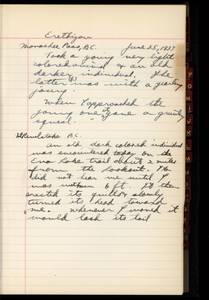 Erethizon
Monashee Pass, B.C. June 28, 1937
Took a young very light
colored animal & an old
darker individual. The
latter was with a
young.
When I approached the
young one gave a grunting
squeal.
Revelstoke B.C.
An old dark colored individual
was encountered today on the
Eva Lake trail about 2 miles
from the lookout. He
did not hear me until I
was within 6 ft. It then
erected its quills & slowly
turned its head towards
me. Whenever I would
would lash its tail